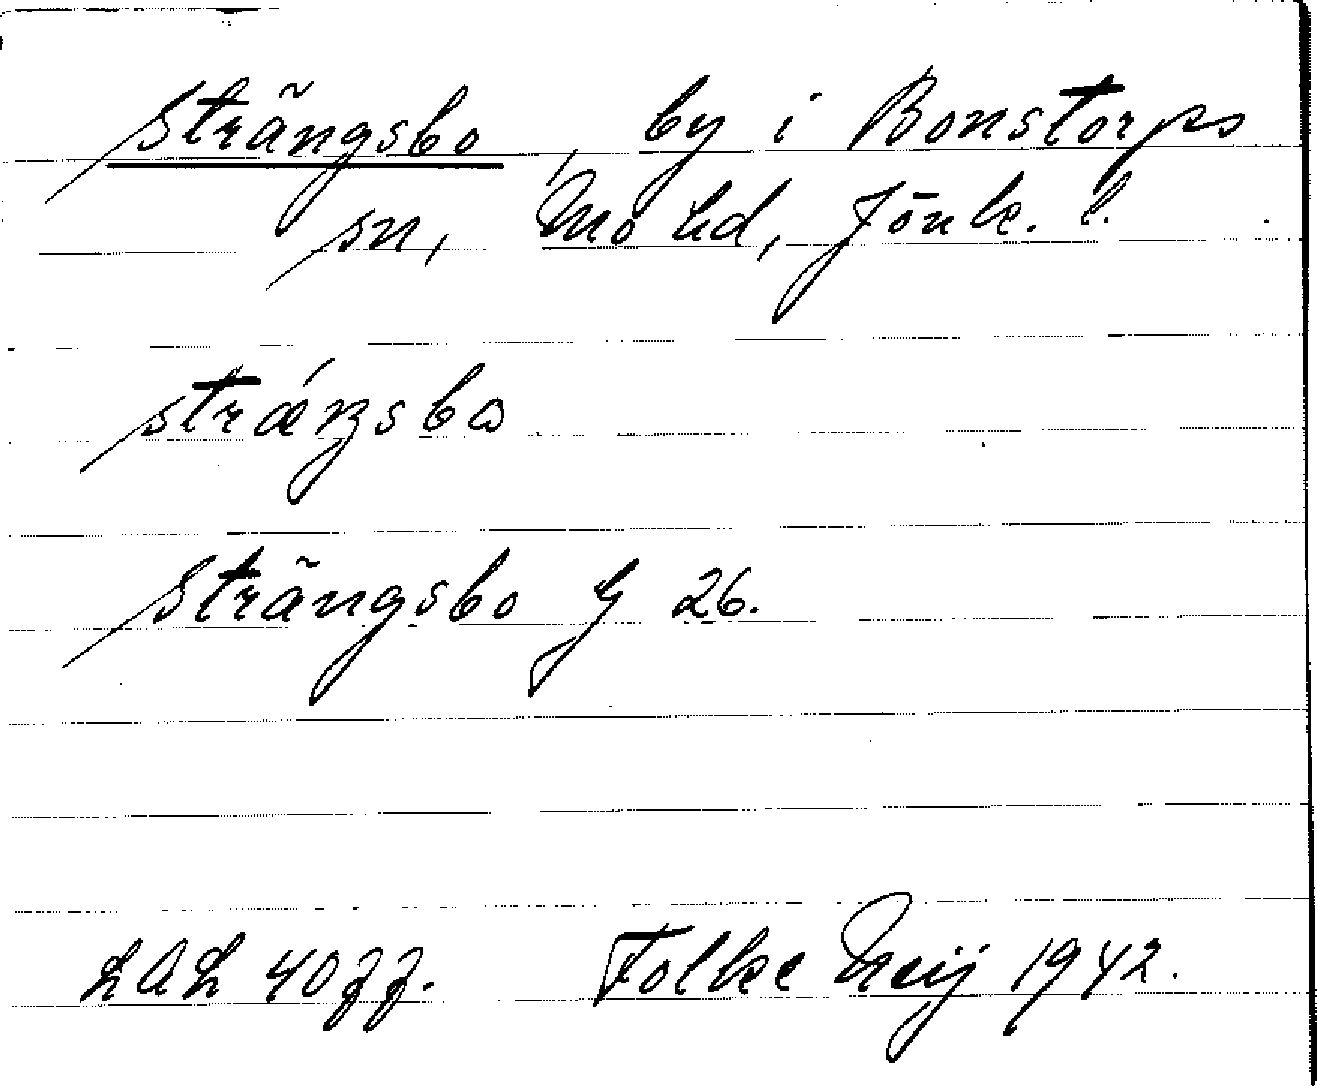 Strängsbo, by i Bonstorps
sn, Mo hd, Jönk. l.
strǽŋsbo
Strängsbo G 26.
LAL 4077. Folke Meij 1942.